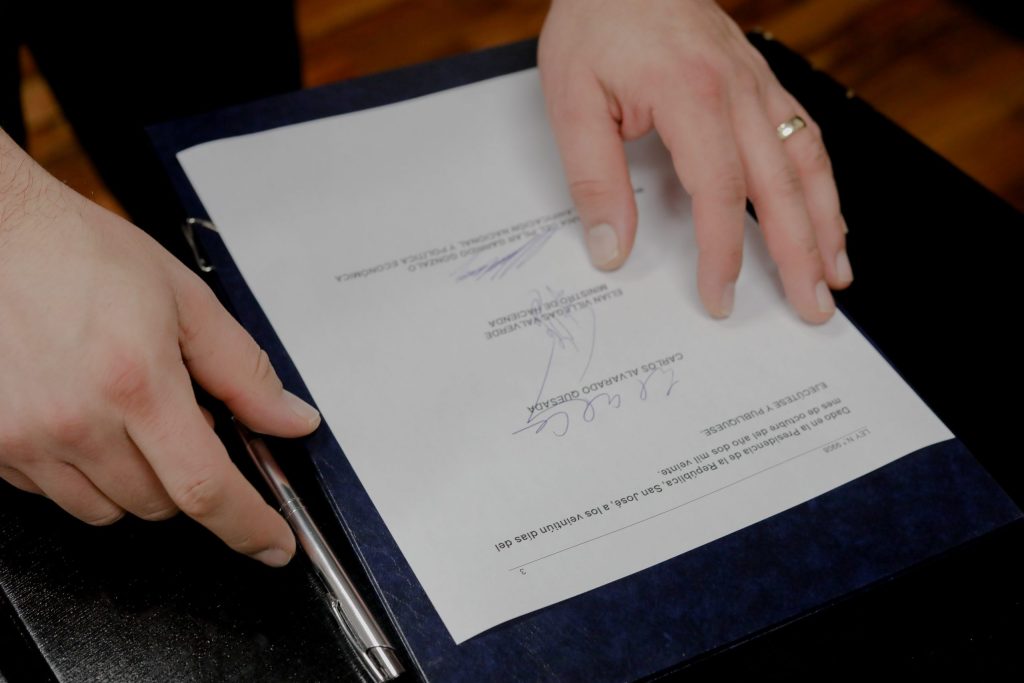 3
LEY N.° 9908
Dado en la Presidencia de la República, San José, a los veintiún días del
mes de octubre del año dos mil veinte.
EJECÚTESE Y PUBLÍQUESE.
CARLOS ALVARADO QUESADA
ELIAN VILLEGAS VALVERDE
MINISTRO DE HACIENDA
DEL PILAR GARRIDO GONZALO
PLANIFICACIÓN NACIONAL Y POLÍTICA ECONÓMICA